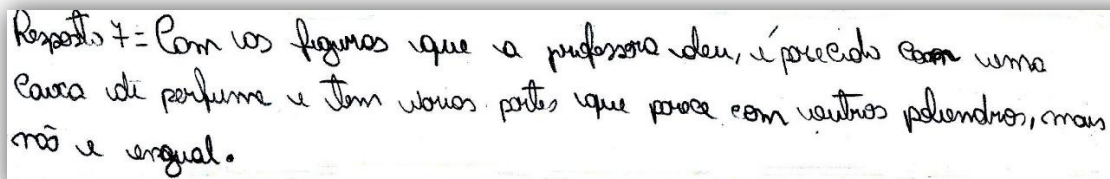 Resposta 7= Com as figuras que a professora deu, é parecido com uma
caixa de perfume e tem varias partes que parece com outros poliendros, mais
não e engual.